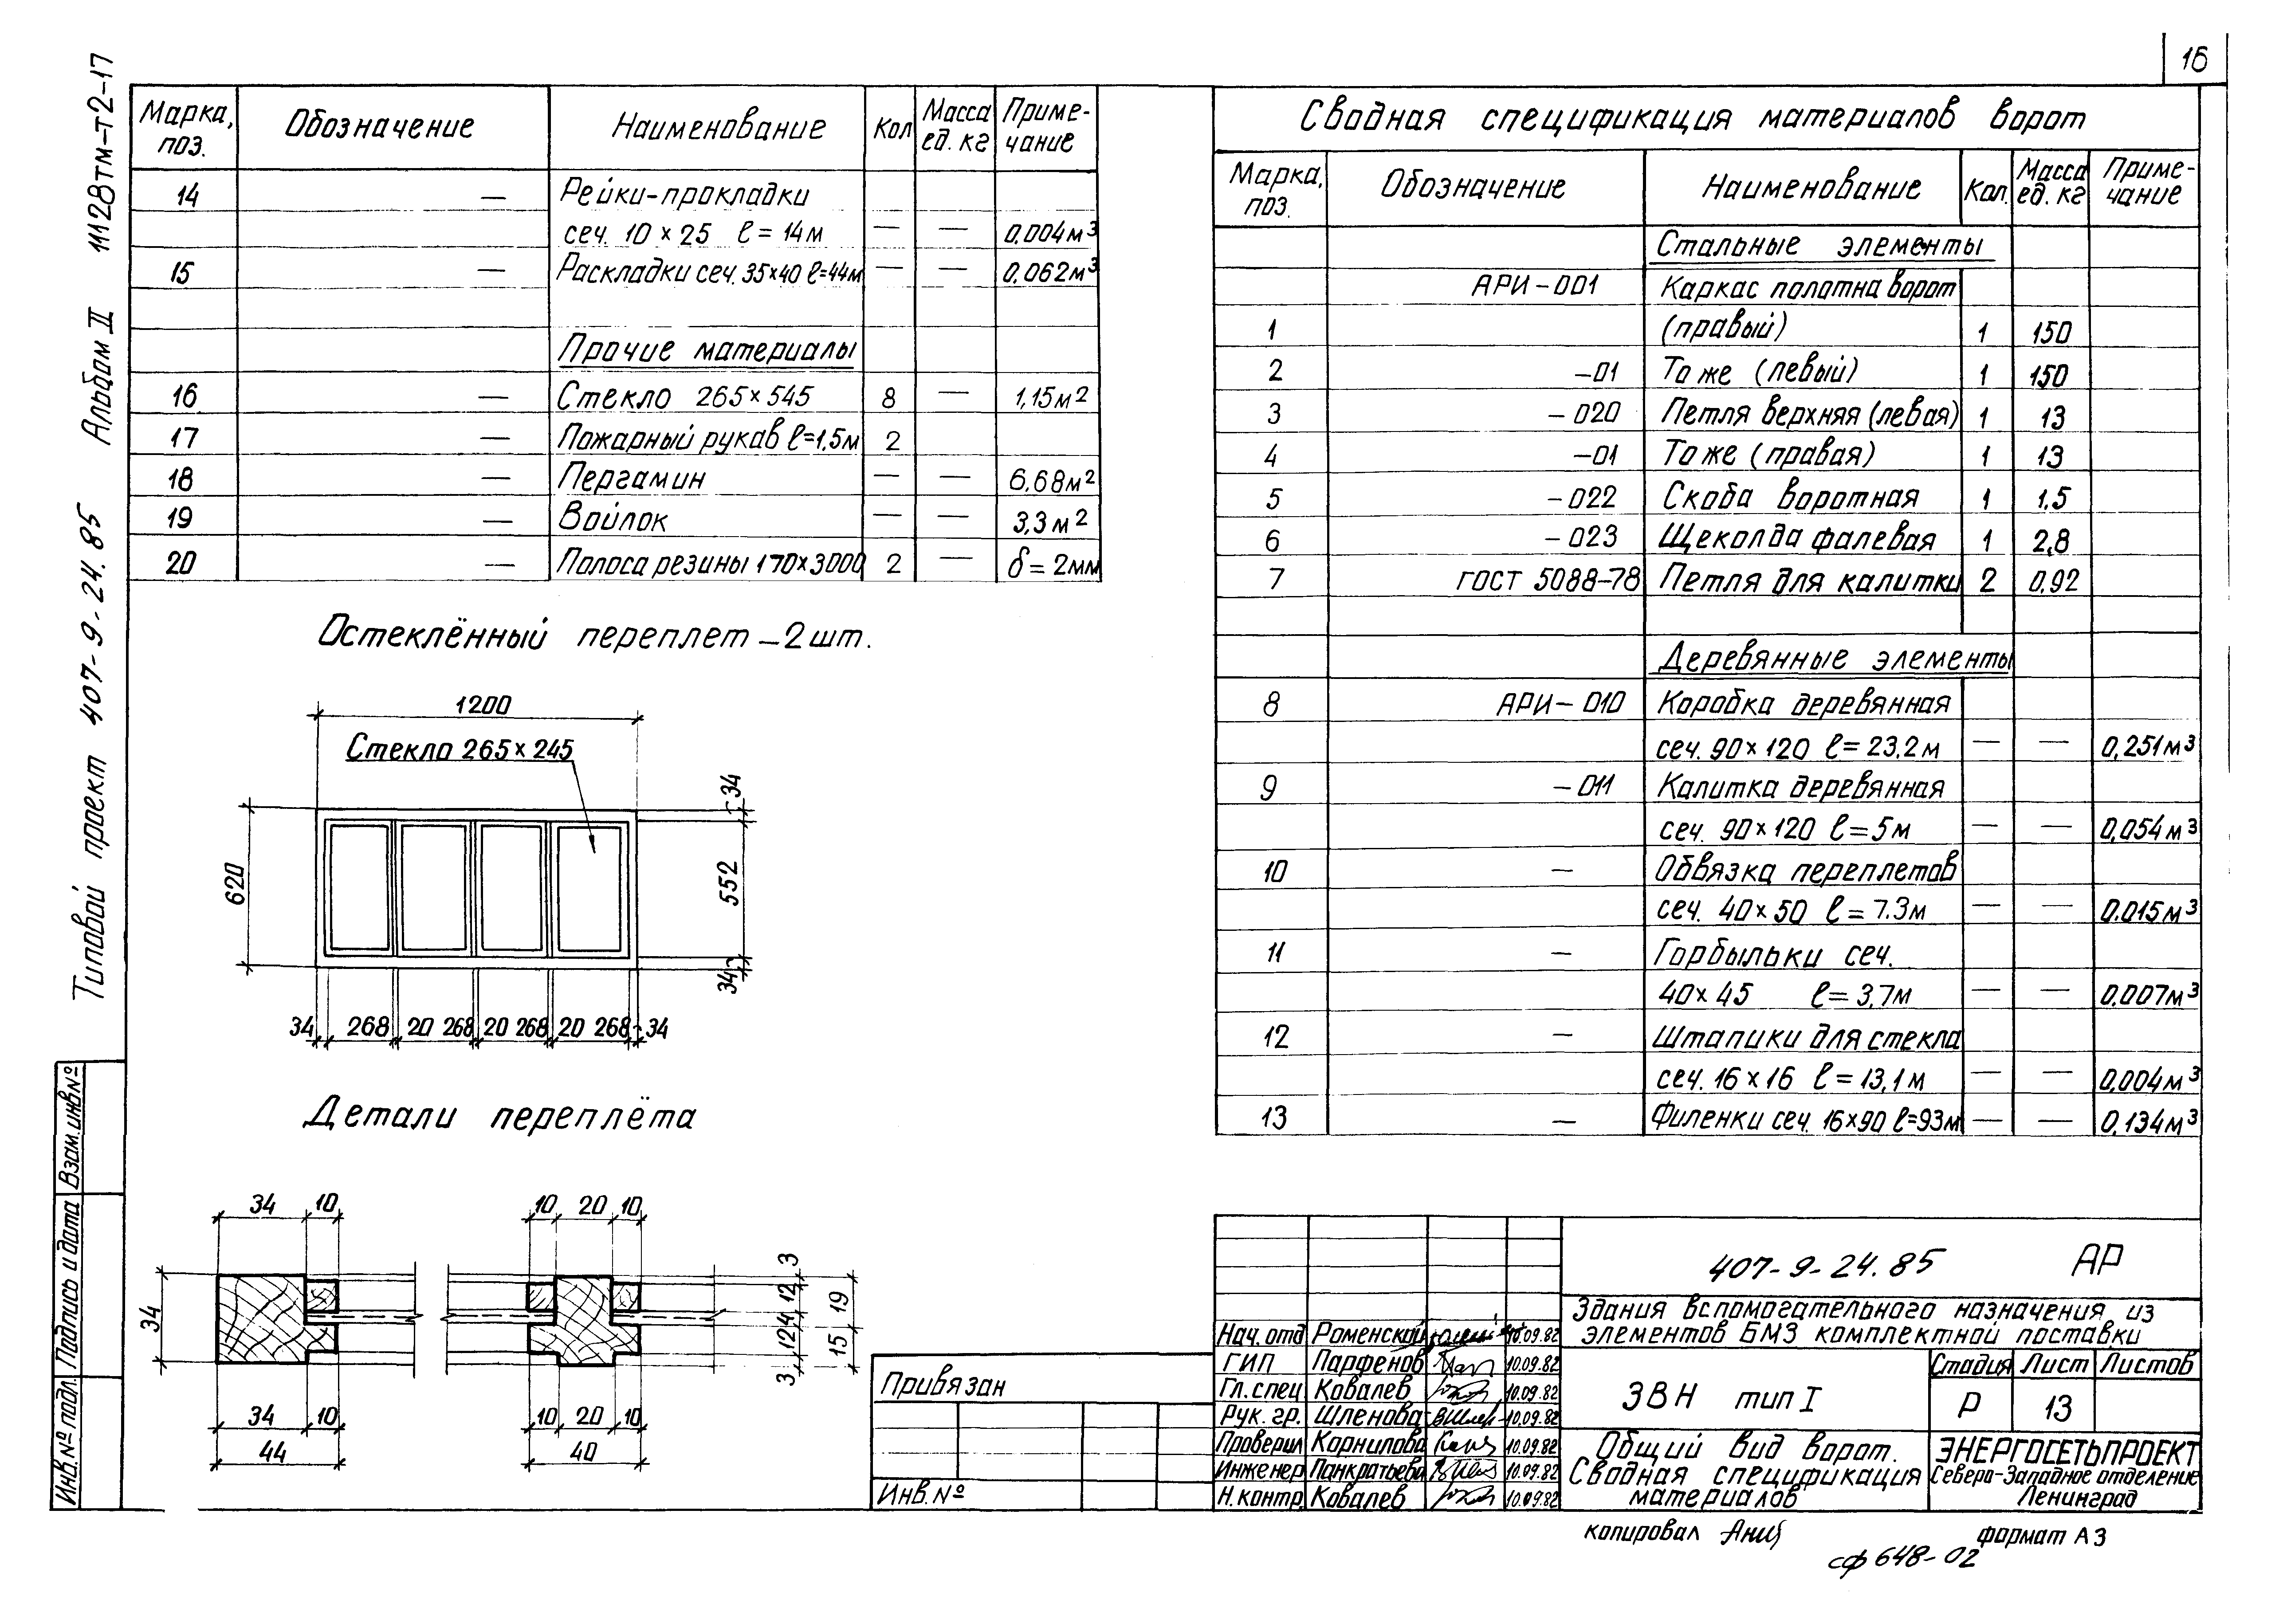 16
Типовой проект 407-9-24.85 Альбом II 11128тм-т2-17
Марка, поз. Обозначение Наименование Кол Масса ед. кг Приме-чание
14 — Рейки-прокладки
сеч. 10×25 ℓ=14м — — 0.004м³
15 — Раскладки сеч. 35×40 ℓ=44м — — 0,062м³
Прочие материалы
16 — Стекло 265×545 8 — 1,15м²
17 — Пожарный рукав ℓ=1,5м 2
18 — Пергамин — — 6,68м²
19 — Войлок — — 3,3м²
20 — Полоса резины 170×3000 2 — δ=2мм
Остеклённый переплет – 2шт.
1200
Стекло 265×245
34
620
552
34
34 268 20 268 20 268 20 268 34
Детали переплёта
34 10 10 20 10
3
12
4
12
3
19
15
34
34 10 10 20 10
44 40
Сводная спецификация материалов ворот
Марка, поз. Обозначение Наименование Кол. Масса ед. кг Приме-чание
Стальные элементы
АРИ-001 Каркас полотна ворот
1 (правый) 1 150
2 -01 То же (левый) 1 150
3 -020 Петля верхняя (левая) 1 13
4 -01 То же (правая) 1 13
5 -022 Скоба воротная 1 1.5
6 -023 Щеколда фалевая 1 2,8
7 ГОСТ 5088-78 Петля для калитки 2 0,92
Деревянные элементы
8 АРИ-010 Коробка деревянная
сеч. 90×120 ℓ=23.2м — — 0,251м³
9 -011 Калитка деревянная
сеч. 90×120 ℓ=5м — — 0,054м³
10 — Обвязка переплетов
сеч. 40×50 ℓ=7.3м — — 0.015м³
11 — Горбыльки сеч.
40×45 ℓ=3,7м — — 0.007м³
12 — Штапики для стекла
сеч. 16×16 ℓ=13,1м — — 0,004м³
13 — Филенки сеч. 16×90 ℓ=93м — — 0.134м³
Взам.инв.№
Подпись и дата
Инв.№ подл.
Привязан
Инв.№
407-9-24.85 АР
Здания вспомогательного назначения из
элементов БМЗ комплектной поставки
Нач.отд Роменский 10.09.82
ГИП Парфенов 10.09.82
Гл.спец. Ковалев 10.09.82
Рук.гр. Шленова 10.09.82
Проверил Корнилова 10.09.82
Инженер Панкратьева 10.09.82
Н.контр. Ковалев 10.09.82
ЗВН тип I
Стадия Лист Листов
Р 13
Общий вид ворот.
Сводная спецификация
материалов
ЭНЕРГОСЕТЬПРОЕКТ
Северо-Западное отделение
Ленинград
копировал формат А3
сф 648-02